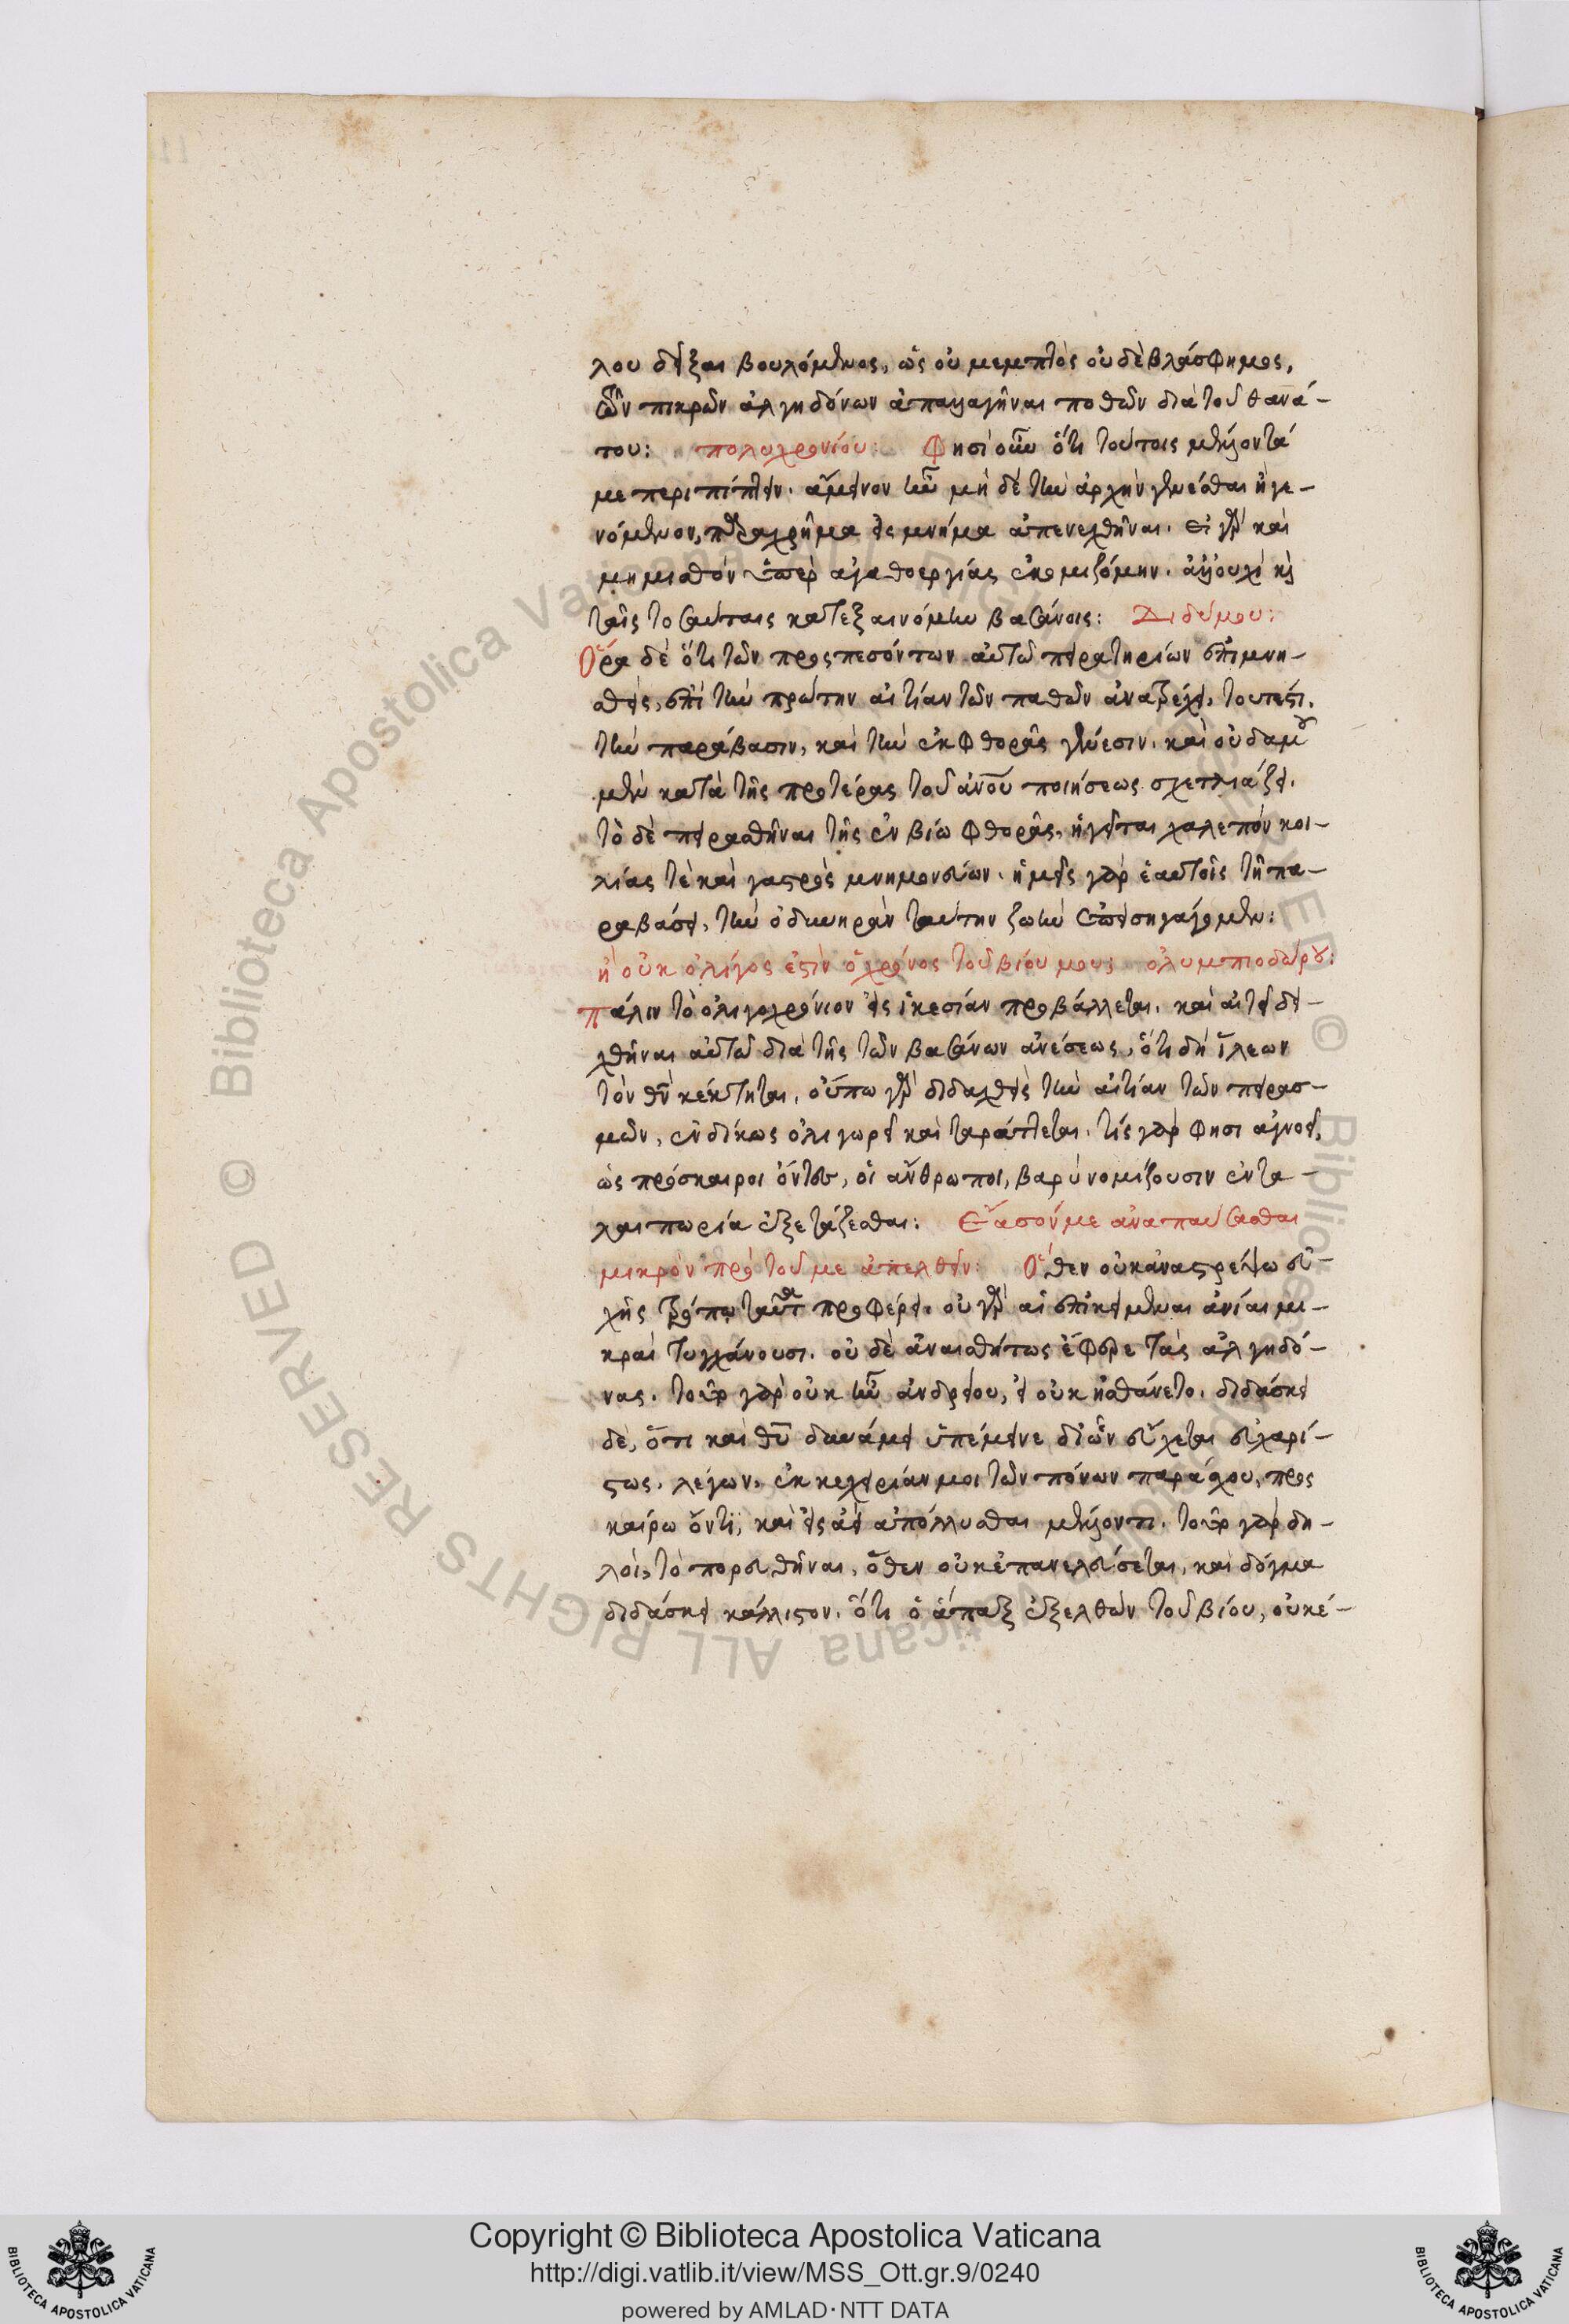 λου δεῖξαι βουλόμενος, ὡς οὐ μεμπτὸς οὐδὲ βλάσφημος,
τῶν πικρῶν ἀλγηδόνων ἀπαλλαγῆναι ποθῶν διὰ τοῦ θανά-
του: πολυχρονίου: Φησὶ οὖν ὅτι τούτοις μέλλοντά
με περιπίπτειν. ἄμεινον ἦν μὴ δὲ τὴν ἀρχὴν γενέσθαι ἢ γε-
νόμενον, παραχρῆμα εἰς μνῆμα ἀπενεχθῆναι. εἰ γὰρ καὶ
μὴ μισθὸν ὑπὲρ ἀγαθοεργίας ἐκομιζόμην. ἀλλ' οὐχὶ καὶ
ταῖς τοσαύταις κατεξαινόμην βασάνοις: Διδύμου:
Ὅρα δὲ ὅτι τῶν προσπεσόντων αὐτῶ πειρατηρίων ἐπιμνη-
σθεὶς, ἐπὶ τὴν πρώτην αἰτίαν τῶν παθῶν ἀνατρέχει, τουτέστι,
τὴν παράβασιν, καὶ τὴν ἐκ φθορᾶς γένεσιν. καὶ οὐδαμοῦ
μὲν κατὰ τῆς προτέρας τοῦ ἀνοῦ ποιήσεως σχετλιάζει.
τὸ δὲ πειραθῆναι τῆς ἐν βίω φθορᾶς, ἡγεῖται χαλεπὸν κοι-
λίας τὲ καὶ γαστρὸς μνημονεύων. ἡμεῖς γὰρ ἑαυτοῖς τῆ πα-
ραβάσει, τὴν ὀδυνηρὰν ταύτην ζωὴν ἐπεισηγάγομεν:
ἢ οὐκ ὀλίγος ἐστὶν ὁ χρόνος τοῦ βίου μου; ολυμπιοδώρου:
πάλιν τὸ ὀλιγοχρόνιον εἰς ἱκεσίαν προβάλλεται. καὶ αἰτεῖ δει-
χθῆναι αὐτῶ διὰ τῆς τῶν βασάνων ἀνέσεως, ὅτι δὴ ἵλεων
τὸν θν κέκτηται, οὔπω γὰρ διδαχθεὶς τὴν αἰτίαν τῶν πειρασ-
μῶν, ἐνδίκως ὀλιγωρεῖ καὶ ταράττεται. τίς γὰρ φησι ἀγνοεῖ,
ὡς πρόσκαιροι ὄντες, οἱ ἄνθρωποι, βαρὺ νομίζουσιν ἐν τα-
λαιπωρία ἐξετάζεσθαι: Ἔασόν με ἀναπαύσασθαι
μικρὸν πρὸ τοῦ με ἀπελθεῖν: Ὅθεν οὐκ ἀναστρέψω εὐ-
χῆς τρόπω ταῦτα προφέρει. οὐ γὰρ αἱ ἐπικείμεναι ἀνίαι μι-
κραὶ τυγχάνουσι. οὐ δὲ ἀναισθήτως ἔφερε τὰς ἀλγηδό-
νας. τοῦτο γὰρ οὐκ ἦν ἀνδρείου, εἰ οὐκ ἠσθάνετο. διδάσκει
δὲ, ὅτι καὶ θῦ δυνάμει ὑπέμεινε δι' ὧν εὔχεται εὐχαρί-
στως. λέγων, ἐκκεχειρίαν μοι τῶν πόνων παράσχου, προς
καίρω ὄντι, καὶ εἰς ἀεὶ ἀπόλλυσθαι μέλλοντι. τοῦτο γὰρ δη-
λοῖ, τὸ πορευθῆναι, ὅθεν οὐκ ἐπανελεύσεται, καὶ δόγμα
διδάσκει κάλλιστον. ὅτι ὁ ἅπαξ ἐξελθὼν τοῦ βίου, οὐκέ-
Copyright © Biblioteca Apostolica Vaticana
http://digi.vatlib.it/view/MSS_Ott.gr.9/0240
powered by AMLAD·NTT DATA
BIBLIOTECA APOSTOLICA VATICANA
BIBLIOTECA APOSTOLICA VATICANA